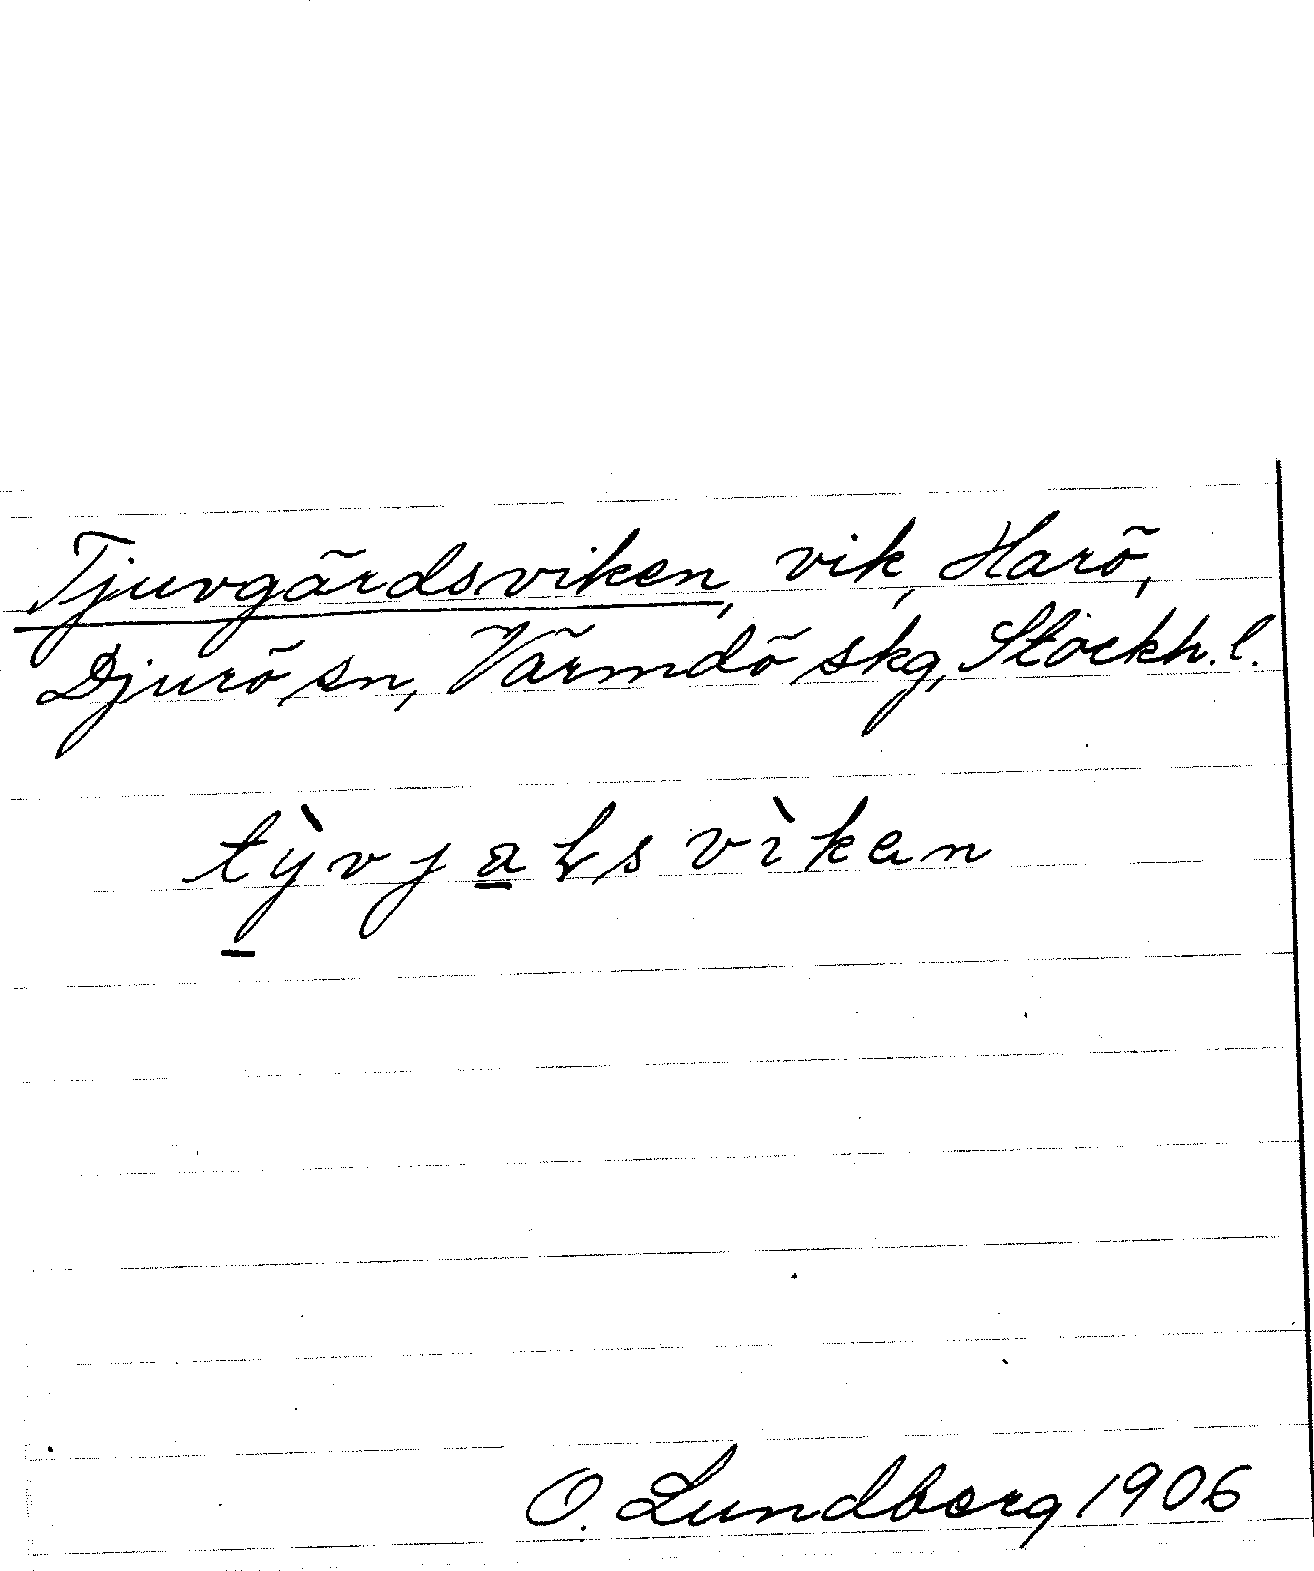 Tjuvgärdsviken, vik, Harö,
Djurö sn, Värmdö skg, Stockh. l.
O. Lundberg 1906